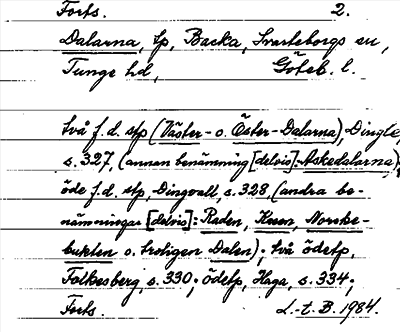 Forts. 2.
Dalarna, tp, Backa, Svarteborgs sn,
Tunge hd, Göteb. l.
två f.d. stp (Väster- o. Öster-Dalarna), Dingle,
s. 327, (annan benämning [delvis]: Askedalarna),
öde f.d. stp, Dingvall, s. 328, (andra be-
nämningar [delvis]: Raden, Kasen, Norske-
bukten o. troligen Dalen); två ödetp,
Folkesberg, s. 330; ödetp, Haga, s. 334;
Forts. L.-t. B. 1984.